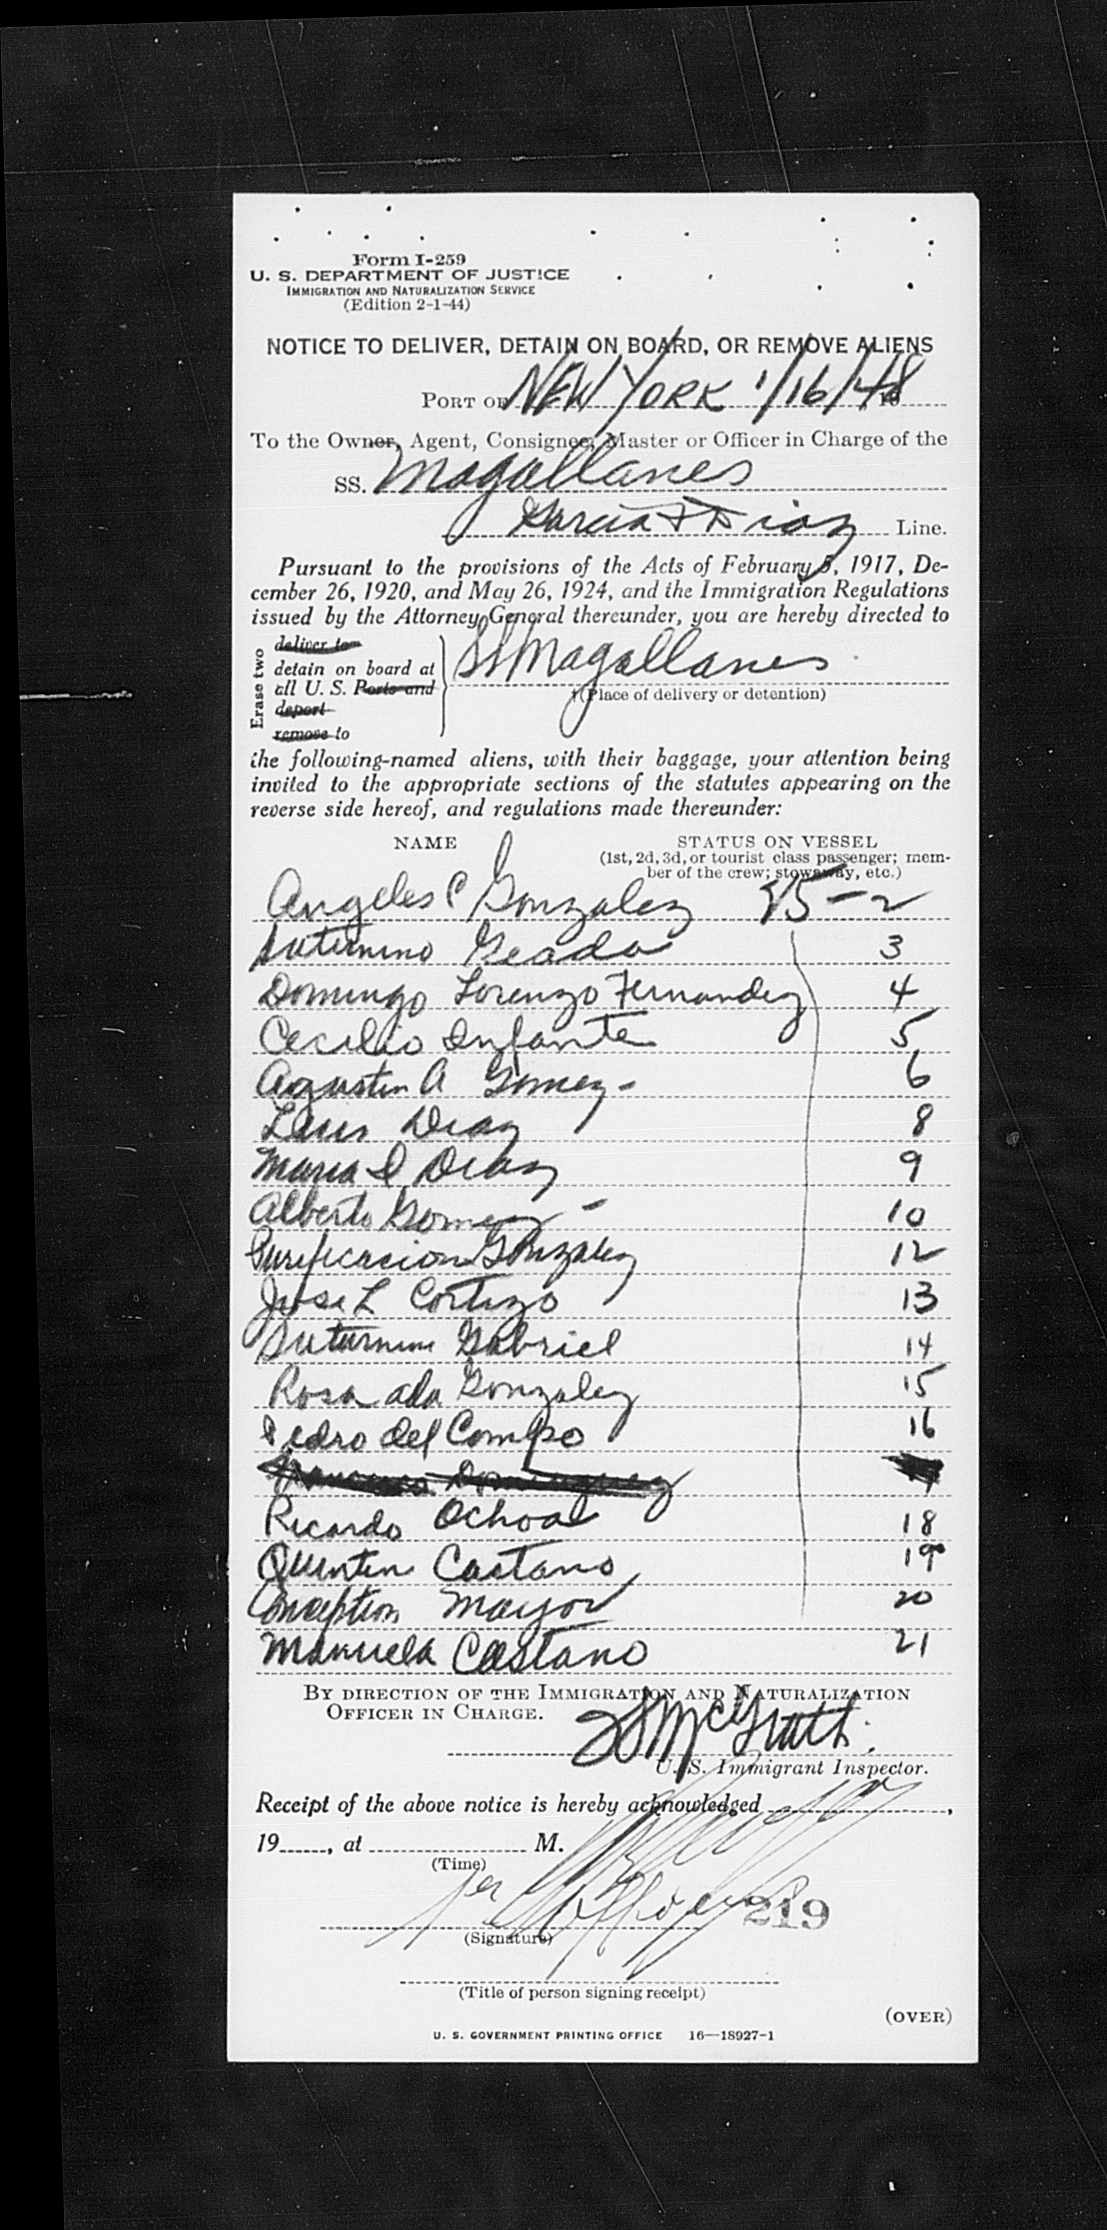 Form I-259
U. S. DEPARTMENT OF JUSTICE
IMMIGRATION AND NATURALIZATION SERVICE
(Edition 2-1-44)
NOTICE TO DELIVER, DETAIN ON BOARD, OR REMOVE ALIENS
PORT OF NEW YORK 1/16/48
To the Owner, Agent, Consignee, Master or Officer in Charge of the
SS. Magallanes
Garcia & Diaz Line.
Pursuant to the provisions of the Acts of February 5, 1917, De-
cember 26, 1920, and May 26, 1924, and the Immigration Regulations
issued by the Attorney General thereunder, you are hereby directed to
Erase two
deliver to
detain on board at
all U. S. Ports and
deport
remove to
SS Magallanes
†(Place of delivery or detention)
the following-named aliens, with their baggage, your attention being
invited to the appropriate sections of the statutes appearing on the
reverse side hereof, and regulations made thereunder:
NAME
STATUS ON VESSEL
(1st, 2d, 3d, or tourist class passenger; mem-
ber of the crew; stowaway, etc.)
Angeles P Gonzalez 25-2
Saturnino Geada 3
Domingo Lorenzo Fernandez 4
Cecilio Infante 5
Agustin A Gomez - 6
Luis Diaz 8
Maria I Diaz 9
Alberto Gomez - 10
Purificacion Gonzalez 12
Jose L Cortizo 13
Saturnino Gabriel 14
Rosa ada Gonzalez 15
Pedro del Campo 16
Ricardo Ochoa 18
Quintin Castano 19
Conception Mayor 20
Manuela Castano 21
BY DIRECTION OF THE IMMIGRATION AND NATURALIZATION
OFFICER IN CHARGE.
McGrath
U. S. Immigrant Inspector.
Receipt of the above notice is hereby acknowledged ,
19 , at M.
(Time)
per
219
(Signature)
(Title of person signing receipt)
(OVER)
U. S. GOVERNMENT PRINTING OFFICE 16—18927-1